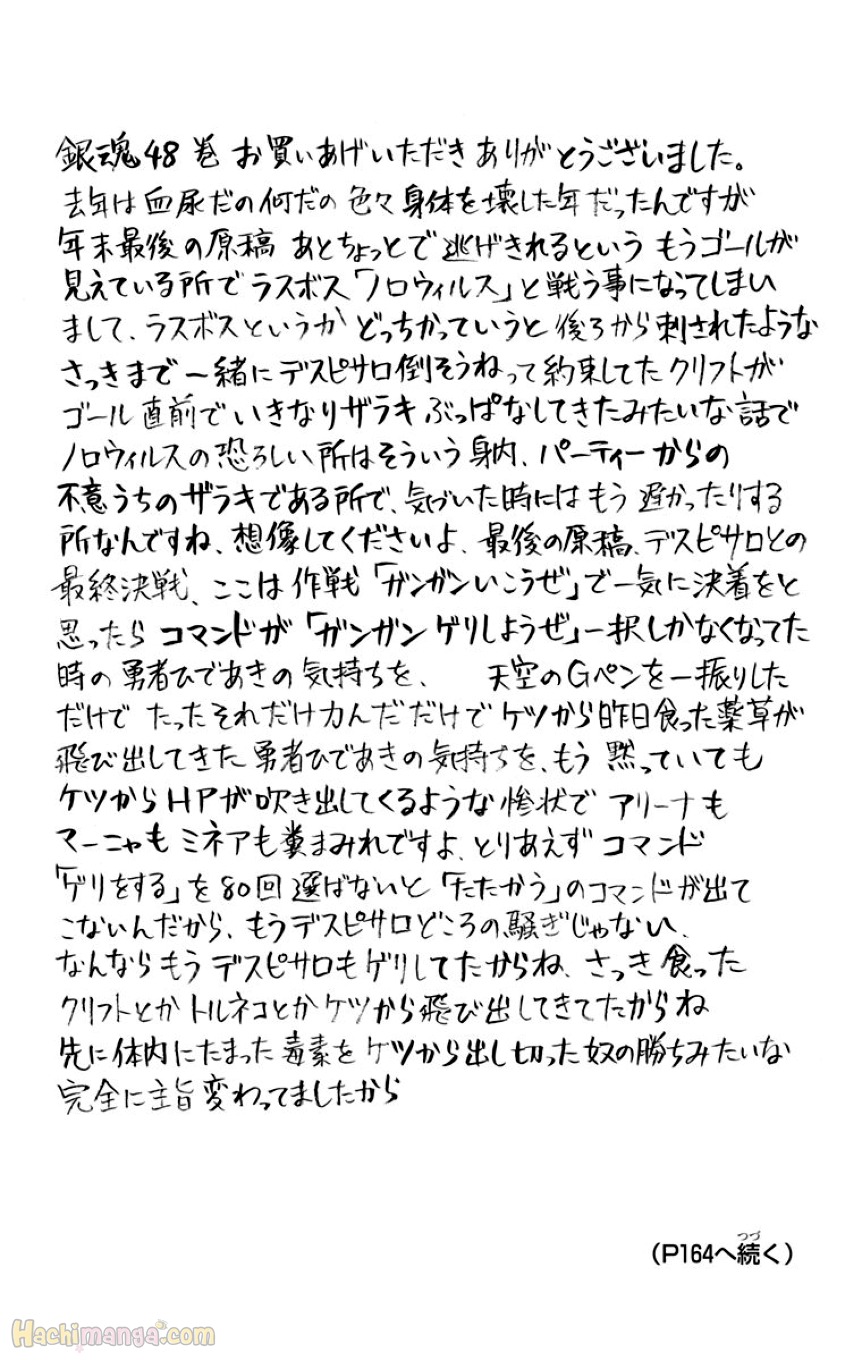 銀魂48巻 お買いあげいただき ありがとうございました。
去年は血尿だの何だの色々身体を壊した年だったんですが
年末最後の原稿 あとちょっとで逃げきれるという もうゴールが
見えている所でラスボス「ノロウィルス」と戦う事になってしまい
まして、ラスボスというか どっちかっていうと 後ろから刺されたような
さっきまで一緒にデスピサロ倒そうねって約束してたクリフトが
ゴール直前でいきなりザラキぶっぱなしてきたみたいな話で
ノロウィルスの恐ろしい所はそういう身内、パーティーからの
不意うちのザラキである所で、気づいた時にはもう遅かったりする
所なんですね、想像してくださいよ、最後の原稿、デスピサロとの
最終決戦、ここは作戦「ガンガンいこうぜ」で一気に決着をと
思ったらコマンドが「ガンガンゲリしようぜ」一択しかなくなってた
時の勇者ひであきの気持ちを、 天空のGペンを一振りした
だけで たったそれだけ力んだだけで ケツから昨日食った薬草が
飛び出してきた勇者ひであきの気持ちを、もう黙っていても
ケツからHPが吹き出してくるような惨状で アリーナも
マーニャも ミネアも糞まみれですよ、とりあえず コマンド
「ゲリをする」を80回選ばないと「たたかう」のコマンドが出て
こないんだから、もうデスピサロどころの騒ぎじゃない、
なんならもうデスピサロもゲリしてたからね、さっき食った
クリフトとか トルネコとか ケツから飛び出してきてたからね
先に体内にたまった毒素をケツから出し切った奴の勝ちみたいな
完全に主旨変わってましたから
(P164へ続く)
つづ
Hachimanga.com